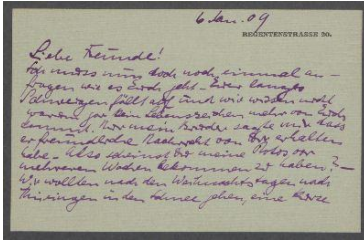 6 Jan. 09
REGENTENSTRASSE 30.
Liebe Freunde!
Ich muss nun doch noch einmal an-
fragen wie es Euch geht. Euer langes
Schweigen fällt auf und wir wissen nicht
warum gar kein Lebenszeichen mehr von Euch
kommt. Nur mein Bruder sagte mir dass
er freundliche Nachricht von Dir erhalten
habe. Also scheinst Du meine Photos vor
mehreren Wochen bekommen zu haben?
Wir wollten nach den Weihnachtstagen nach
Thüringen in den Schnee gehen, eine